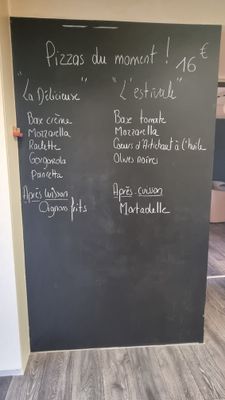 Pizzas du moment ! 16 €
"La Délicieuse"
Base crème
Mozzarella
Raclette
Gorgonzola
Pancetta
Après cuisson
Oignons frits
"L'estivale"
Base tomate
Mozzarella
Coeurs d'Artichaut à l'huile
Olives noires
Après-cuisson
Mortadelle